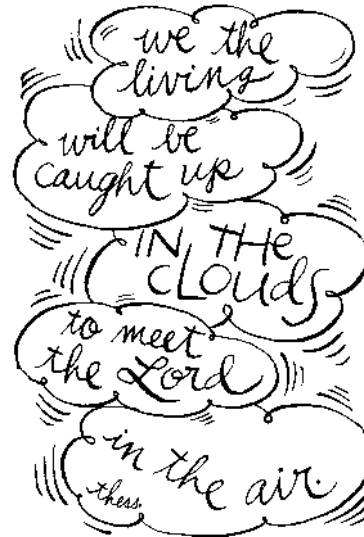 we the
living
will be
caught up
IN THE
CLOUdS
to meet
the Lord
in the air.
thess.